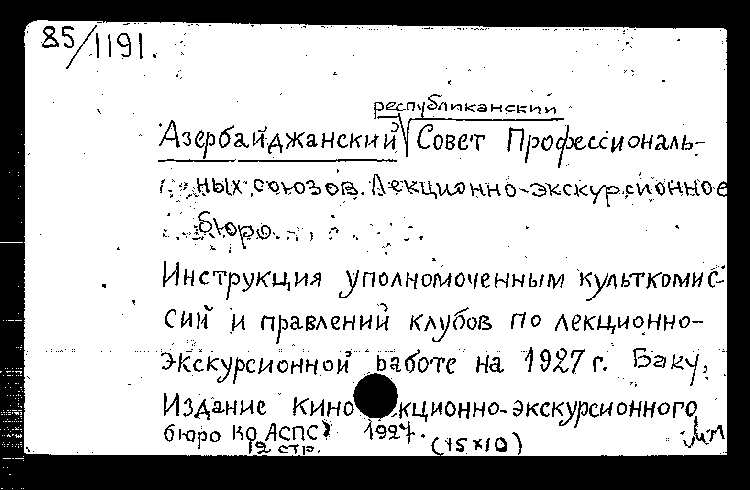 85/1191.
республиканский
Азербайджанский Совет Профессиональ-
ных союзов. Лекционно-экскурсионное
бюро.
Инструкция уполномоченным культкомис-
сий и правлений клубов по лекционно-
экскурсионной работе на 1927 г. Баку,
Издание Кино кционно-экскурсионного
бюро КО АСПС, 1927.
12 стр. (15×10)